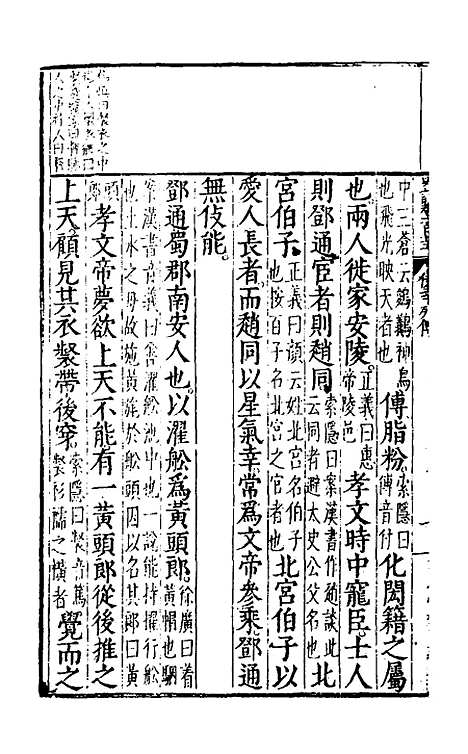 中三蒼云鵔鸃神鳥也飛光映天者也傅脂粉索隱曰傅音付化閎籍之屬
也兩人徙家安陵正義曰惠帝陵邑孝文時中寵臣士人
則鄧通宦者則趙同索隱曰案漢書作趙談此云同者避太史公父名也北
宮伯子正義曰顏云姓北宮名伯子也按伯子名北宮之宦者也北宮伯子以
愛人長者而趙同以星氣幸常爲文帝參乘鄧通
無伎能
鄧通蜀郡南安人也以濯舩爲黃頭郎徐廣曰着黃帽也駰
案漢書音義曰善濯舩池中也一說能持擢行舩也土水之母故施黃旄於舩頭因以名其郎曰黃
頭郎孝文帝夢欲上天不能有一黃頭郎從後推之
上天顧見其衣裻帶後穿索隱曰裻音篤裻衫襦之橫者覺而之